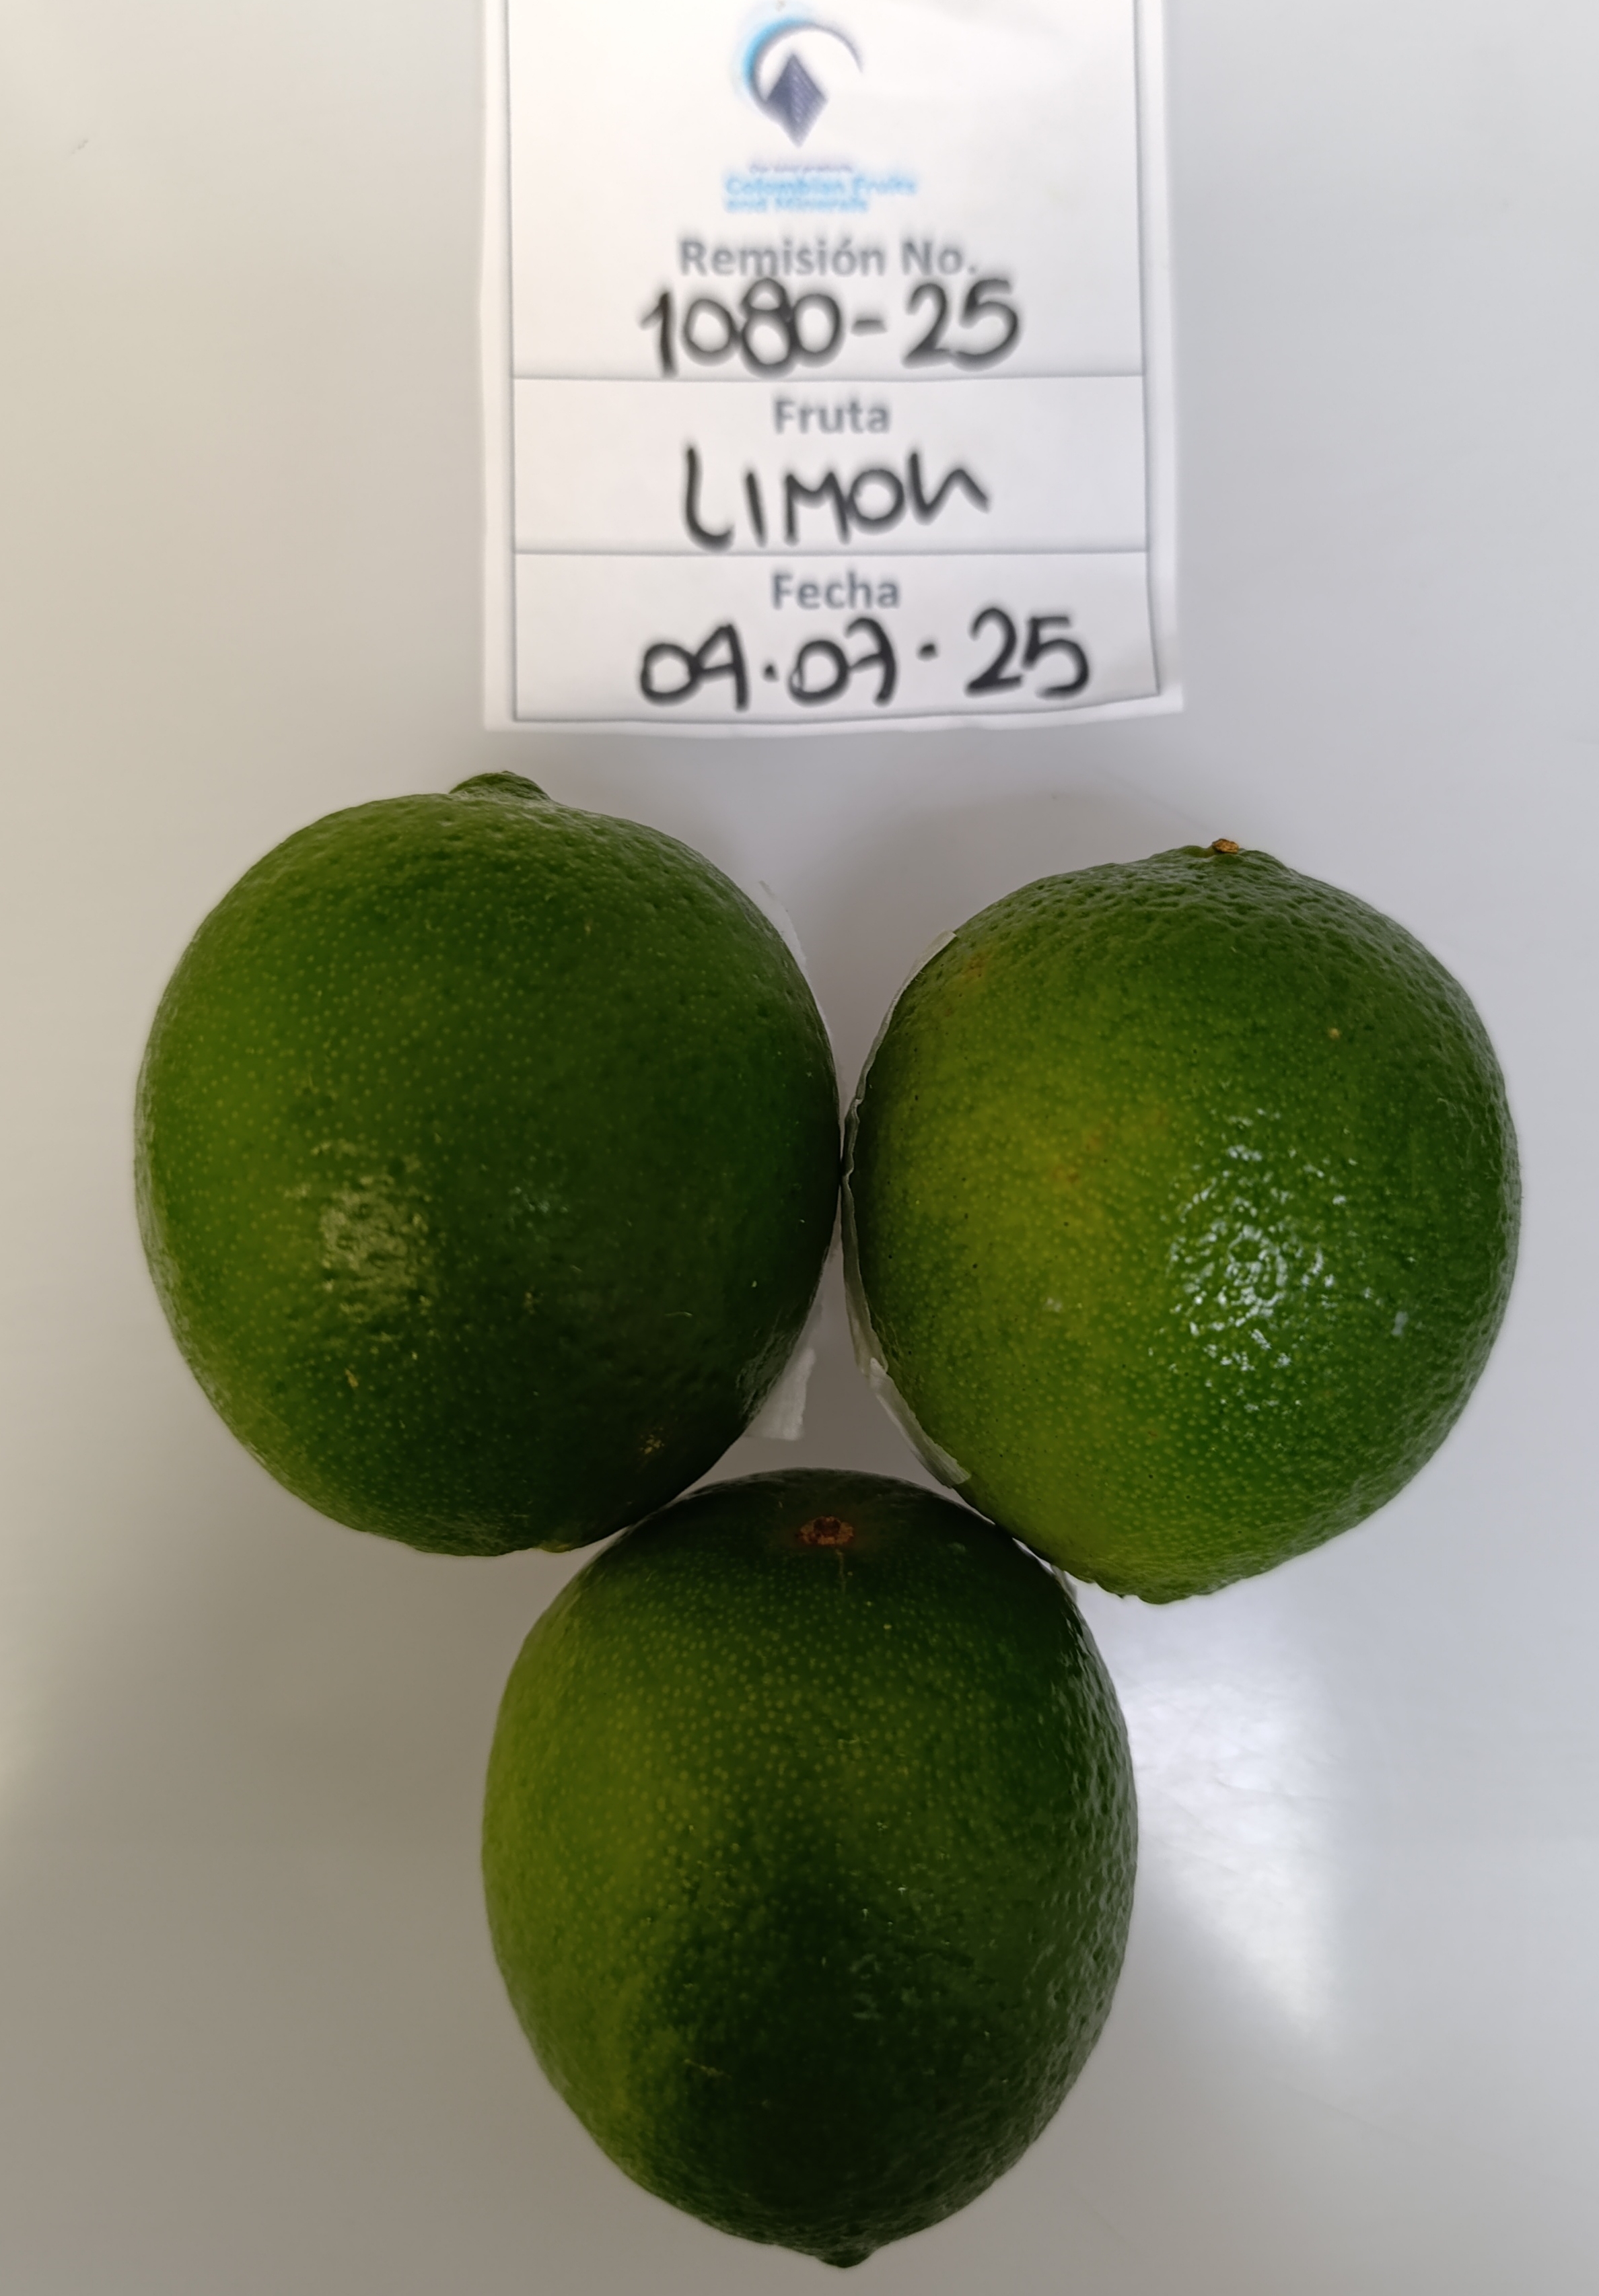 Colombian Fruits
and Minerals
Remisión No.
1080-25
Fruta
LIMON
Fecha
09.07.25